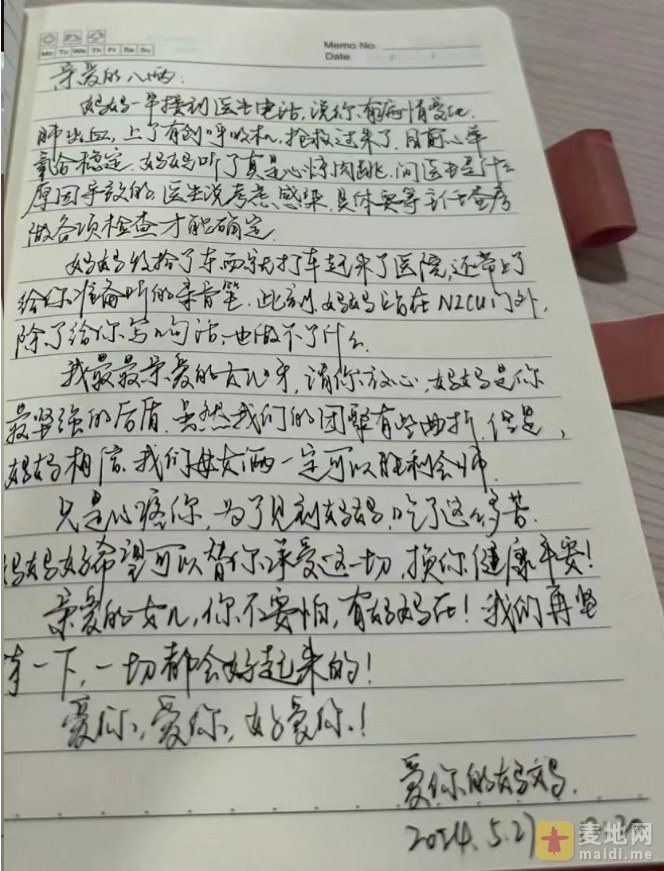 Memo No.
Mo Tu We Th Fr Sa Su
Date / /
亲爱的八两：
妈妈一早接到医生电话，说你有病情变化，
肺出血，上了有创呼吸机，抢救过来了，目前心率
氧合稳定，妈妈听了真是心惊肉跳，问医生是什么
原因导致的，医生说考虑感染，具体要等主任查房
做各项检查才能确定。
妈妈收拾了东西就打车赶来了医院，还带上了
给你准备听的录音笔。此刻，妈妈站在NICU门外，
除了给你写封信，也做不了什么。
我最最亲爱的女儿呀，请你放心，妈妈是你
最坚强的后盾。虽然我们的团聚有些曲折，但是，
妈妈相信，我们母女俩一定可以胜利会师。
只是心疼你，为了见到妈妈，吃了这么多苦。
妈妈好希望可以替你承受这一切，换你健康平安！
亲爱的女儿，你不要怕，有妈妈在！我们再坚
一下，一切都会好起来的！
爱你，爱你，好爱你！
爱你的妈妈
2024.5.27
麦地网
maidi.me